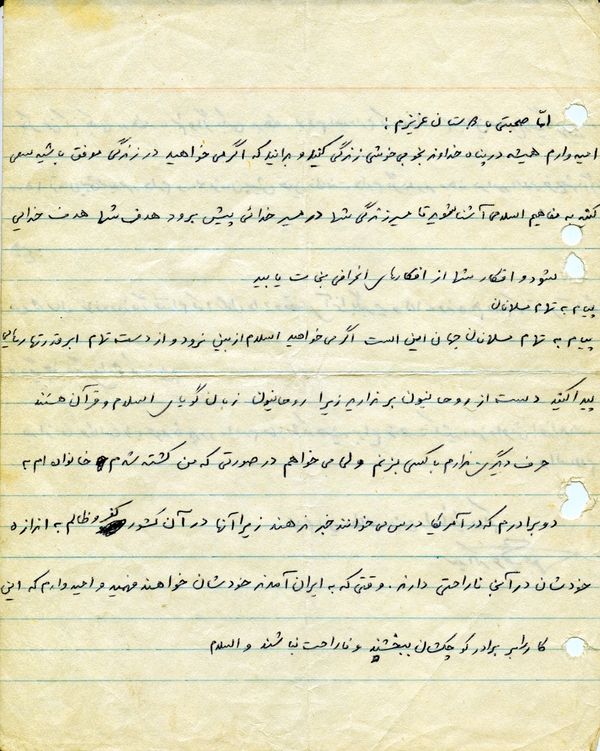 امّا صحبتی با دوستان عزیزم :
امیدوارم همیشه در پناه خداوند بخوبی و خوشی زندگی کنید و بدانید که اگر می خواهید در زندگی موفق باشید سعی
کنید به مفاهیم اسلامی آشنا شوید تا مسیر زندگی شما در مسیر خدائی پیش برود هدف شما هدف خدایی
بشود و افکار شما از افکارهای انحرافی نجات یابید
پیام به تمام مسلمانان
پیام به تمام مسلمانان جهان این است اگر می خواهید اسلام از بین نرود و از دست تمام ابرقدرتها رهایی
پیدا کنید دست از روحانیون بر ندارید زیرا روحانیون زبان گویای اسلام و قرآن هستند
حرف دیگری ندارم با کسی بزنم ولی می خواهم در صورتی که من کشته شدم خانواده ام به
دو برادرم که در آمریکا درس می خوانند خبر ندهند زیرا آنها در آن کشور کفر و ظالم به اندازه
خودشان در آنجا ناراحتی دارند . وقتی که به ایران آمدند خودشان خواهند فهمید و امیدوارم که این
کار را بر برادر کوچکشان ببخشند و ناراحت نباشند والسلام